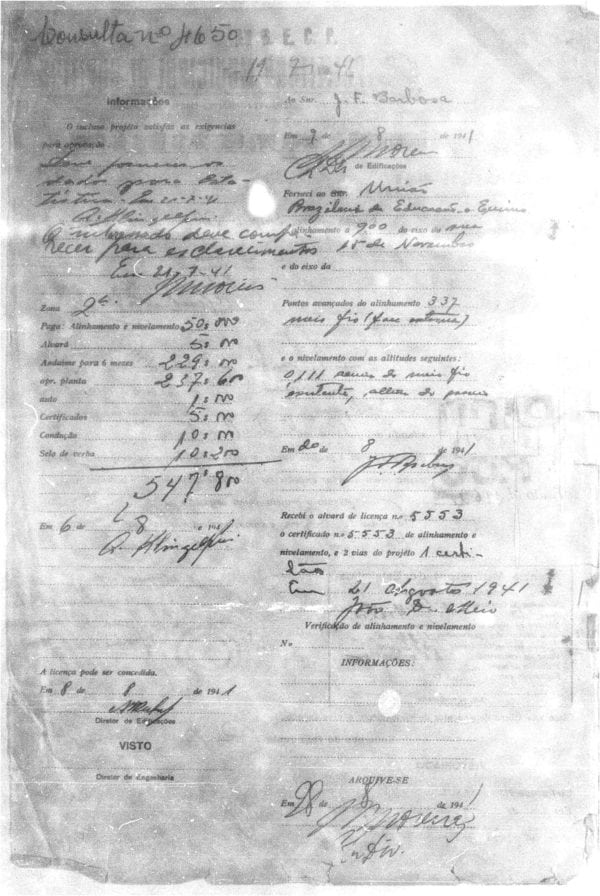 Consulta nº 4650
19-7-41
Informações
O incluso projéto satisfaz as exigencias
para aprovação
Deve fornecer os
dados para Esta-
tistica. Em 21-7-41
O interessado deve compa-
recer para esclarecimentos
Em 21-7-41
Zona 2ª
Paga: Alinhamento e nivelamento 50$000
Alvará 5$00
Andaime para 6 mezes 229$00
apr. planta 237$600
auto 1$00
Certificados 5$00
Condução 10$00
Selo de verba 10$200
547$800
Em 6 de 8 de 1941
A licença pode ser concedida.
Em 8 de 8 de 1941
Diretor de Edificações
VISTO
Diretor de Engenharia
Ao Snr. J. F. Barbosa
Em 9 de 8 de 1941
de Edificações
Forneci ao Snr. União
Brazileira de Educação e Ensino
alinhamento a 9,00 do eixo da rua
15 de Novembro
e do eixo da
Pontos avançados do alinhamento 3.37
meio fio (face externa)
e o nivelamento com as altitudes seguintes:
0,111 acima do meio fio
existente, além do passeio
Em 20 de 8 de 1941
Recebi o alvará de licença n.º 5553
o certificado n.º 5553 de alinhamento e
nivelamento, e 2 vias do projéto 1 certi-
dão
Em 21 Agosto 1941
Verificação de alinhamento e nivelamento
Nº
INFORMAÇÕES:
ARQUIVE-SE
Em 28 de 8 de 1941